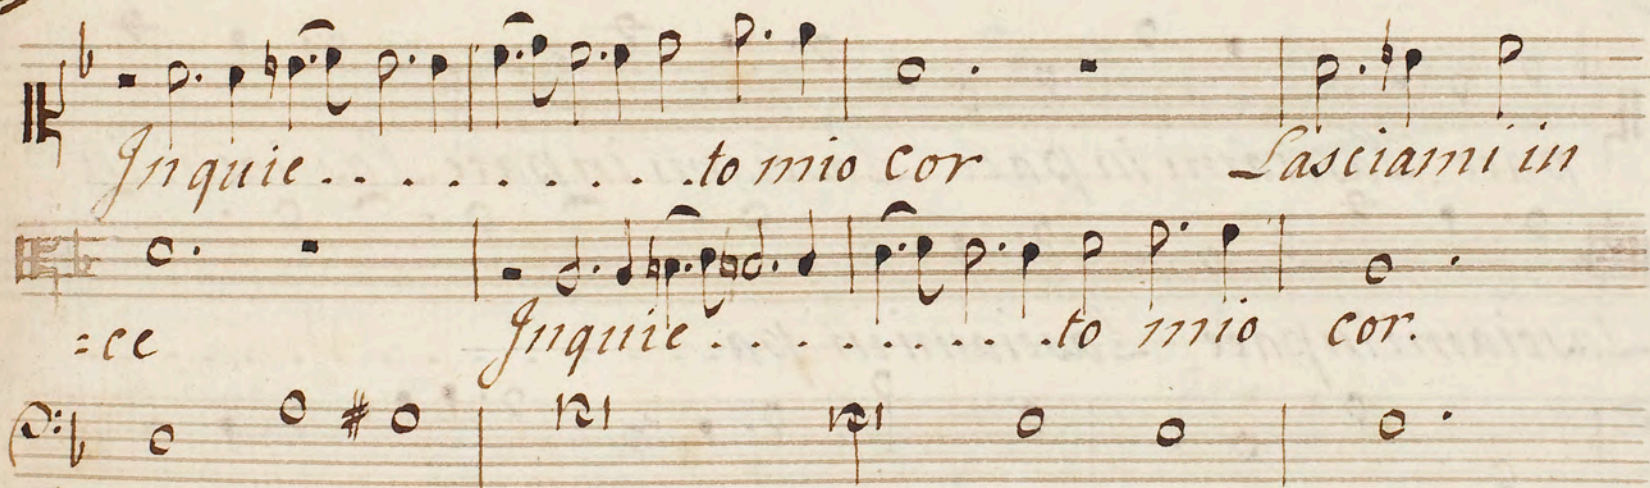 Inquie. . . . . . . . . .to mio cor Lasciami in
=ce Inquie. . . . . . . . . .to mio cor.